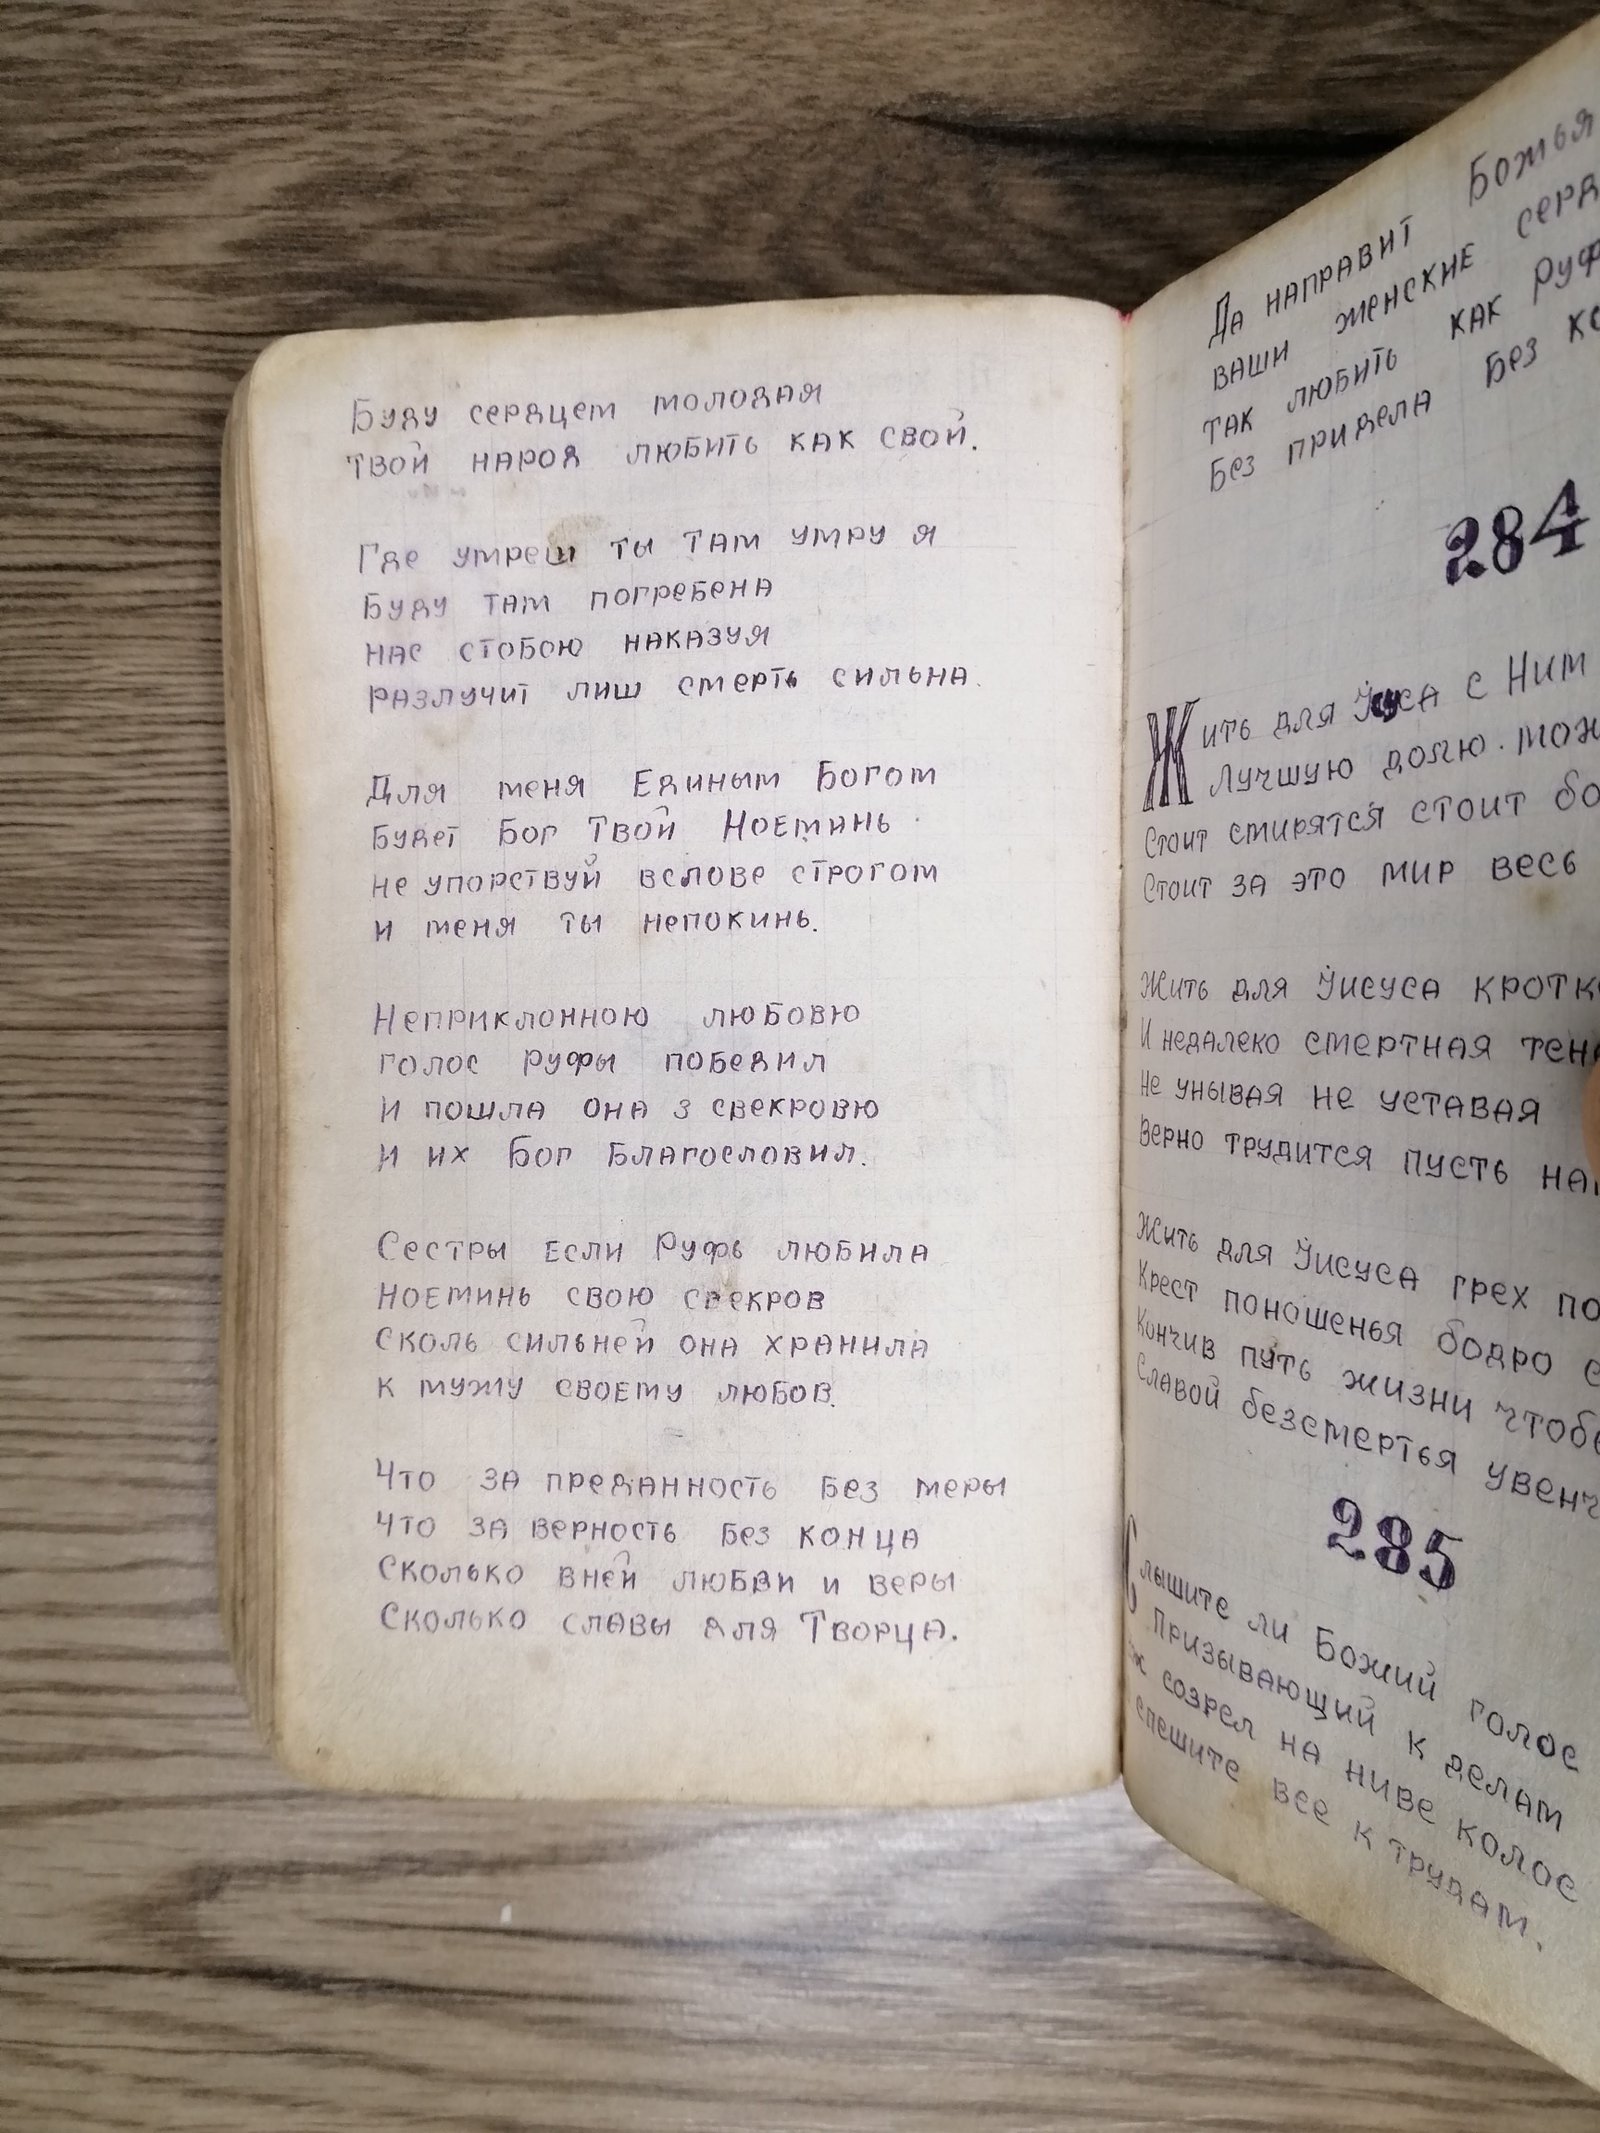 Буду сердцем молодая
твой народ любить как свой.
Где умреш ты там умру я
Буду там погребена
нас стобою наказуя
разлучит лиш смерть сильна.
Для меня Единым Богом
будет Бог Твой Ноеминь.
не упорствуй вслове строгом
и меня ты непокинь.
Неприклонною любовю
голос Руфы победил
И пошла она з свекровю
и их Бог Благословил.
Сестры если Руфь любила
Ноеминь свою свекров
сколь сильней она хранила
к мужу своему любов.
Что за преданность без меры
что за верность без конца
Сколько вней любви и веры
Сколько славы для Творца.
Да направит Божья
ваши женские
так любить как
Без придела Без
284
Жить для Иуса с Ним
Лучшую долю.
Стоит смирятся стоит
Стоит за это мир весь
Жить для Иисуса
И недалеко смертная
Не унывая не уставая
Верно трудится пусть
Жить для Иисуса грех
Крест поношенья бодро
Кончив путь жизни
Славой безсмертья
285
Слышите ли Божий голос
Призывающий к делам
созрел на ниве колос
спешите все к трудам.